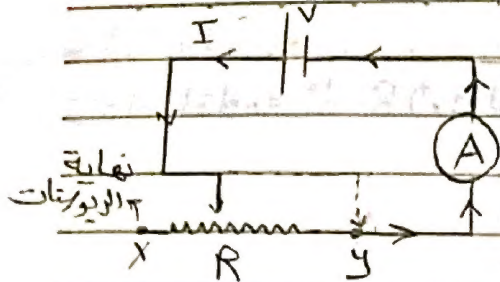 I V
A
نهاية
الريوستات
X R y